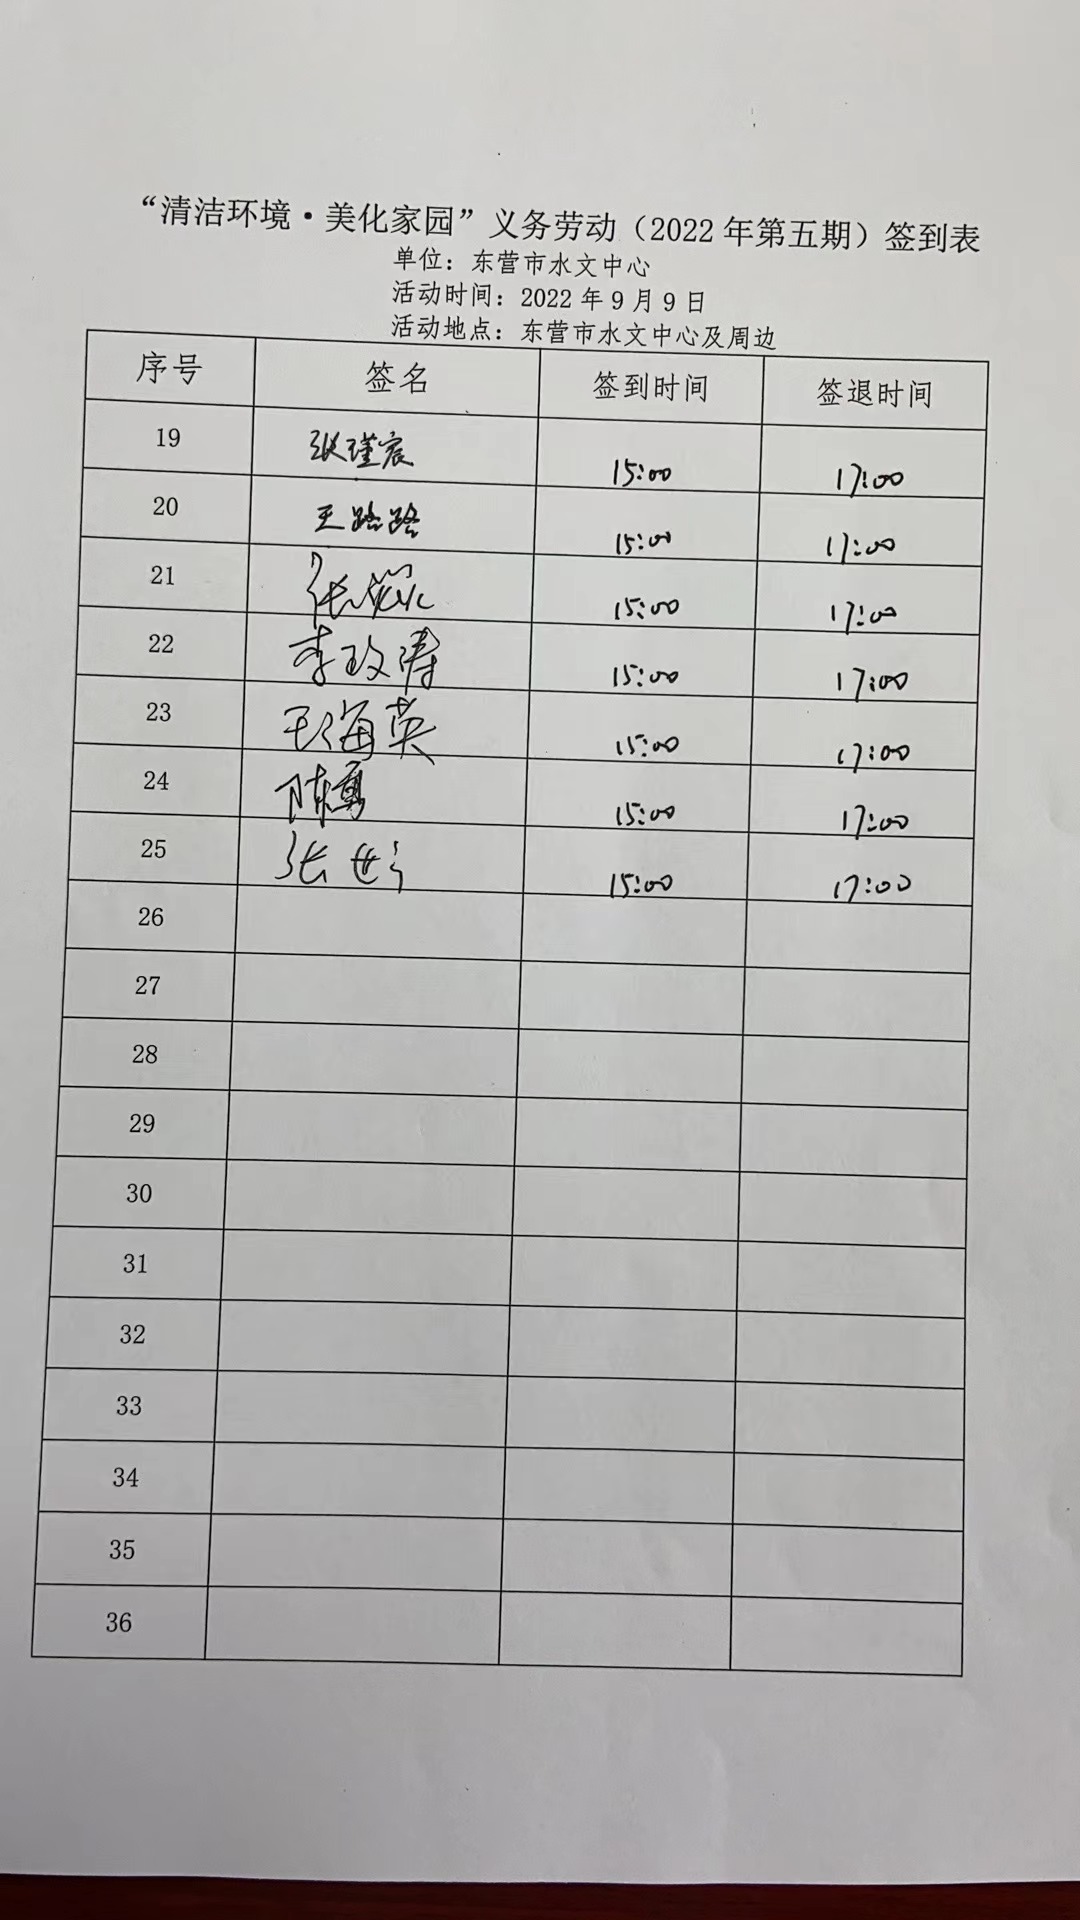 “清洁环境·美化家园”义务劳动（2022年第五期）签到表
单位：东营市水文中心
活动时间：2022年9月9日
活动地点：东营市水文中心及周边
序号 签名 签到时间 签退时间
19 张瑾宸 15:00 17:00
20 王路路 15:00 17:00
21 张 15:00 17:00
22 李玫涛 15:00 17:00
23 王海英 15:00 17:00
24 陈勇 15:00 17:00
25 张世 15:00 17:00
26
27
28
29
30
31
32
33
34
35
36